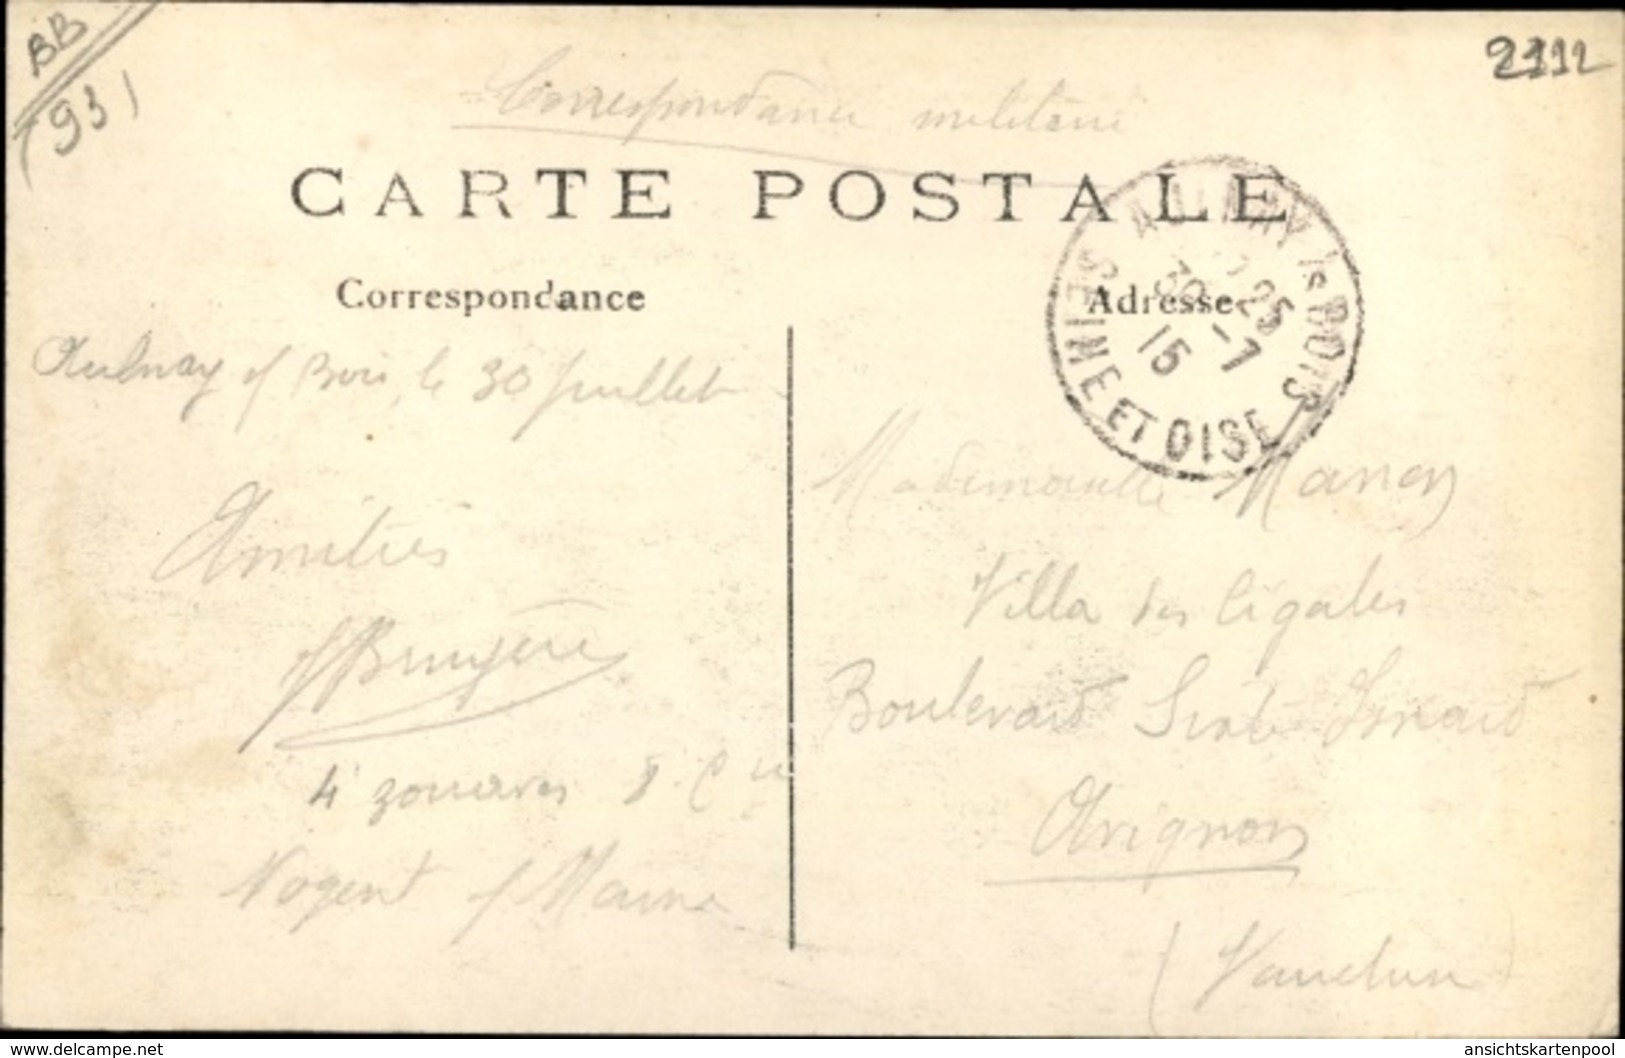 BB
(93)
2112
Correspondance militaire
CARTE POSTALE
Correspondance
Adresse
AULNAY Ls BOIS
30 -7
15
SEINE ET OISE
Aulnay s/ Bois, le 30 juillet
Amitiés
Bruyère
4e zouaves Cie
Nogent s/ Marne
Mademoiselle Manon
Villa des Cigales
Boulevard Sixte Isnard
Avignon
(Vaucluse)
www.delcampe.net
ansichtskartenpool